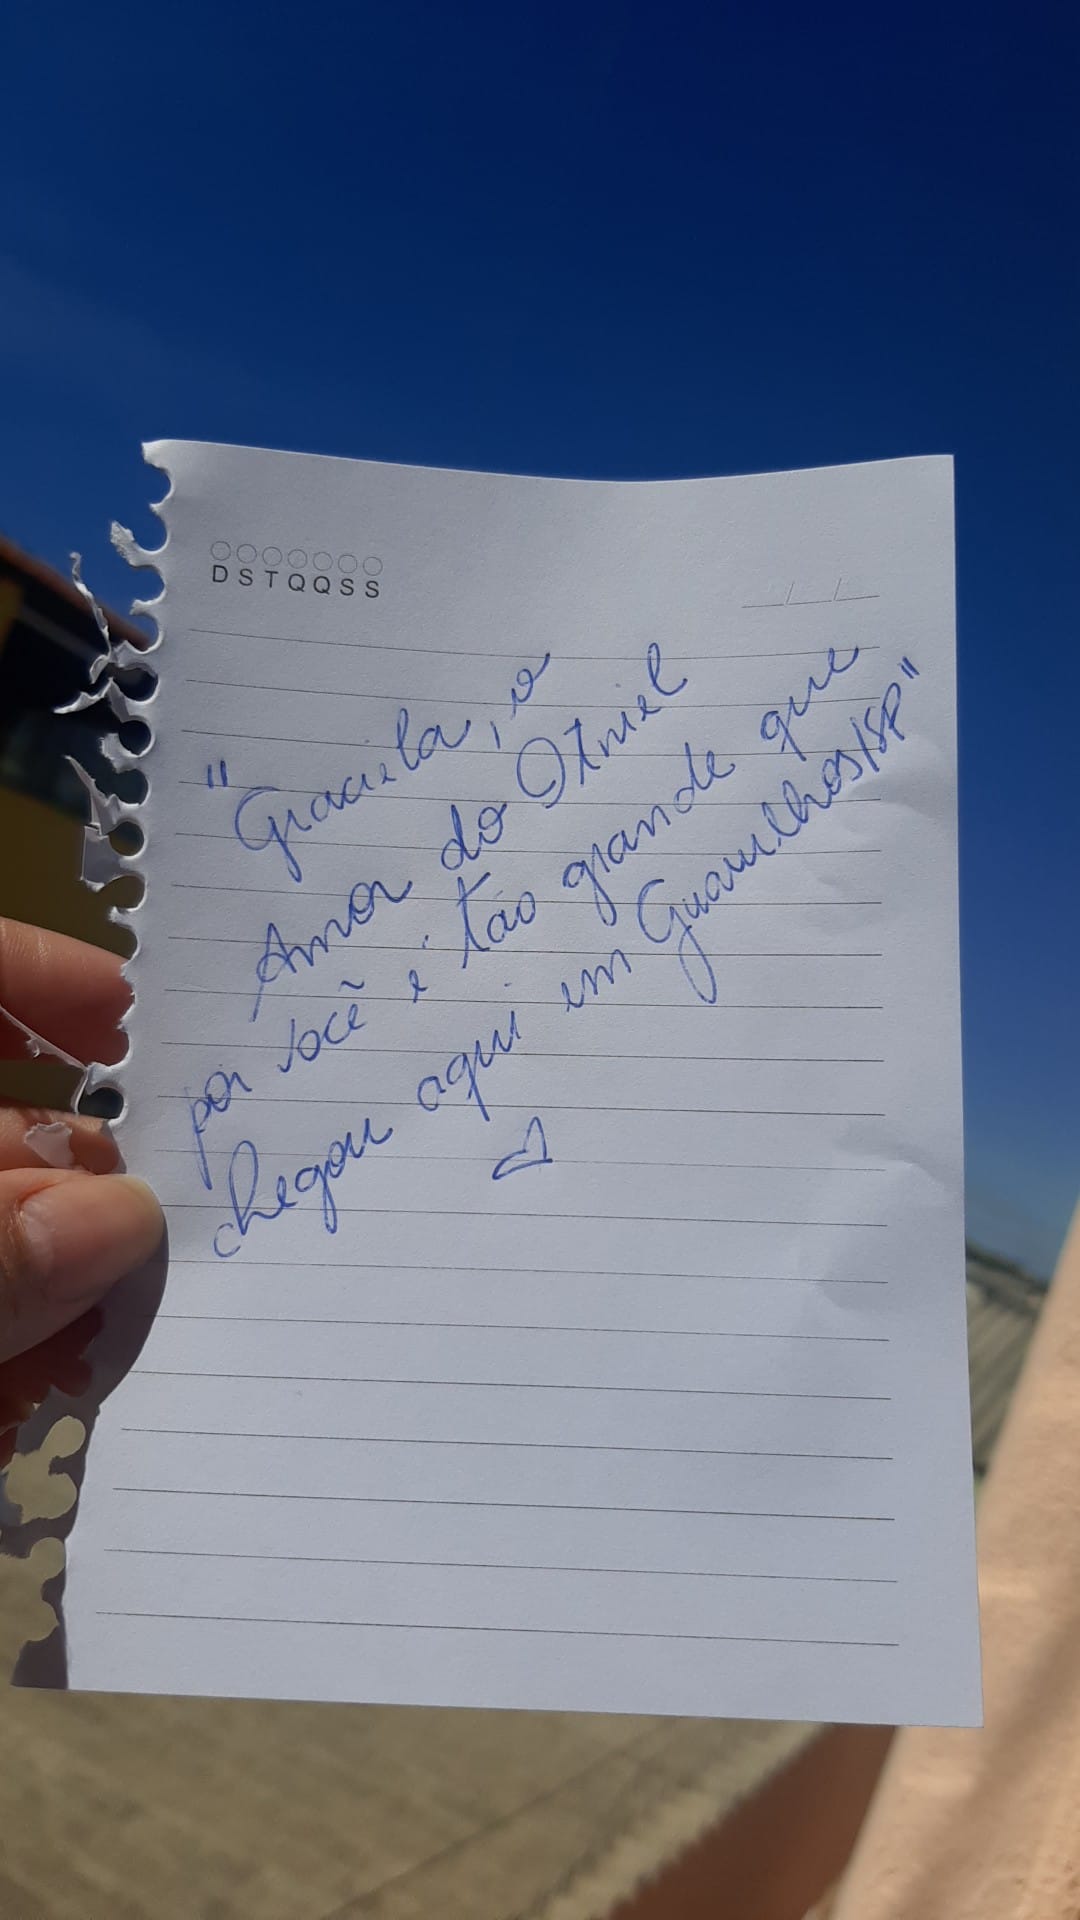 D S T Q Q S S
__/__/__
"Graciela, o
Amor do Otniel
por você é tão grande que
chegou aqui em Guarulhos/SP"